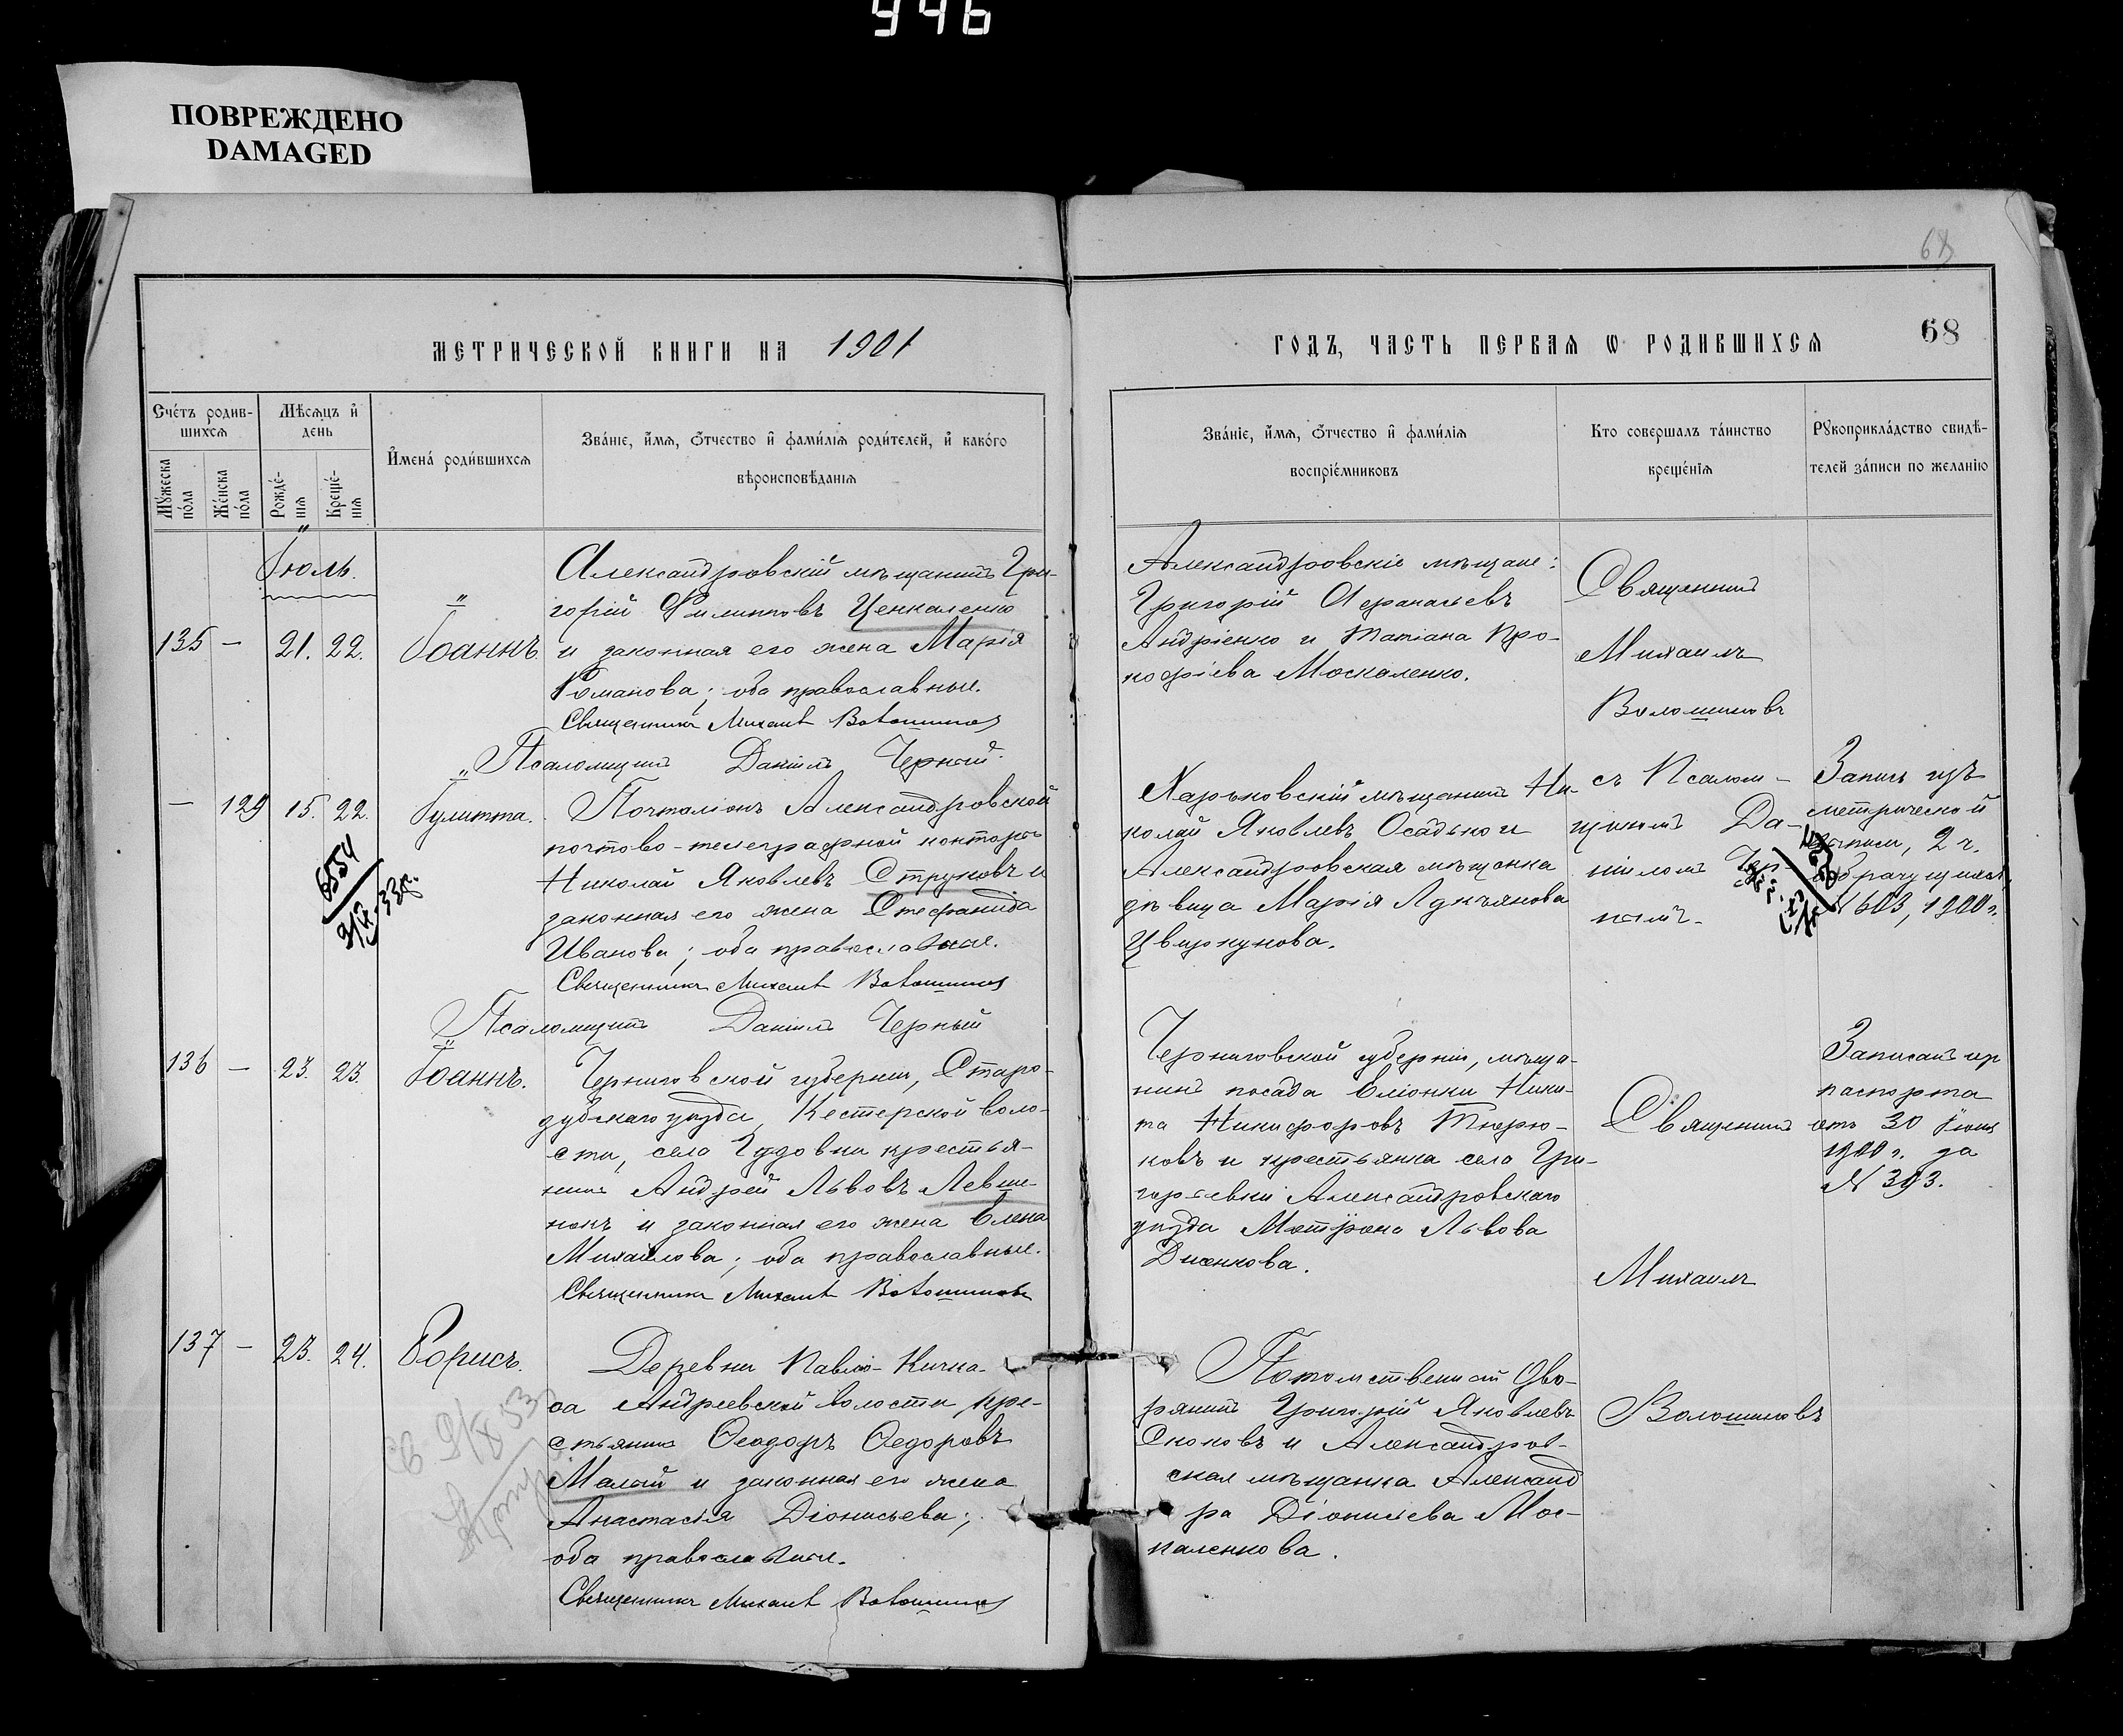 946
ПОВРЕЖДЕНО
DAMAGED
68
МЕТРИЧЕСКОЙ КНИГИ НА 1901
ГОДЪ, ЧАСТЬ ПЕРВАЯ Ѡ РОДИВШИХСЯ
68
Счетъ родив-
шихся
Мѣсяцъ и
день
Имена родившихся
Званіе, имя, отчество и фамилія родителей, и какого
вѣроисповѣданія
Мужеска пола
Женска пола
Рожде-
нія
Креще-
нія
Званіе, имя, отчество и фамилія
воспріемниковъ
Кто совершалъ таинство
крещенія
Рукоприкладство свидѣ-
телей записи по желанію
Іюль.
135 — 21. 22. Іоаннъ
Александровскій мѣщанинъ Гри-
горій Филиповъ Ценкаленко
и законная его жена Марія
Романова; оба православные.
Священникъ Михаилъ Волошиновъ
Псаломщикъ Даніилъ Черный
Александровскіе мѣщане:
Григорій Аѳанасьевъ
Андріенко и Татіана Про-
кофіева Москаленко.
Священникъ
Михаилъ
Волошиновъ
— 129 15. 22. Іулитта.
Почталіонъ Александровской
почтово-телеграфной конторы
Николай Яковлевъ Струковъ и
законная его жена Стефанида
Иванова; оба православные.
Священникъ Михаилъ Волошиновъ
Псаломщикъ Даніилъ Черный
6554
Харьковскій мѣщанинъ Ни-
колай Яковлевъ Осадько и
Александровская мѣщанка
дѣвица Марія Лукъянова
Цвиркунова.
съ Псалом-
щикомъ Да-
ніиломъ Чер-
нымъ.
Запись изъ
метрической
выписи, 2 ч.
о брачущихся,
№ 603, 1900 г.
136 — 23. 23. Іоаннъ.
Черниговской губерніи, Старо-
дубскаго уѣзда, Кестерской воло-
сти, села Гудовки крестья-
нинъ Андрей Львовъ Левше-
нокъ и законная его жена Елена
Михайлова; оба православные.
Священникъ Михаилъ Волошиновъ
Черниговской губерніи, мѣща-
нинъ посада Еліонки Ники-
та Никифоровъ Тюрю-
ковъ и крестьянка села Гри-
горьевки Александровскаго
уѣзда Матрона Львова
Диенкова.
Священникъ
Михаилъ
Записанъ из
паспорта
отъ 30 Іюня
1900 г. за
№ 393.
137 — 23. 24. Борисъ.
Деревни Павло-Кичка-
са Андреевской волости, кре-
стьянинъ Ѳеодоръ Ѳедоровъ
Малый и законная его жена
Анастасія Діонисьева;
оба православные.
Священникъ Михаилъ Волошиновъ
Потомственный Дво-
рянинъ Григорій Яковлевъ
Скоковъ и Александров-
ская мѣщанка Александ
ра Діонисіева Мос-
каленкова.
Волошиновъ